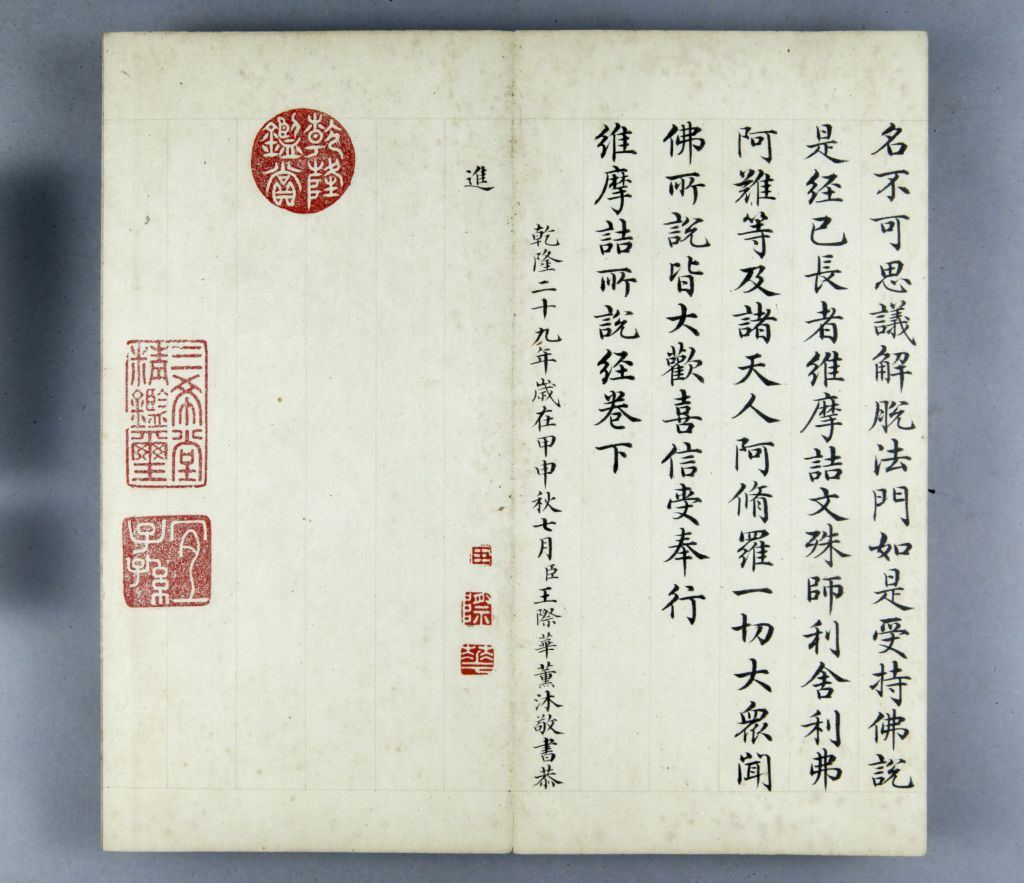 名不可思議解脫法門如是受持佛說
是経已長者維摩詰文殊師利舍利弗
阿難等及諸天人阿脩羅一切大眾聞
佛所說皆大歡喜信受奉行
維摩詰所說経卷下
乾隆二十九年歲在甲申秋七月臣王際華薰沐敬書恭
進
臣
際
華
乾隆鑑賞
三希堂精鑑璽
宜子孫